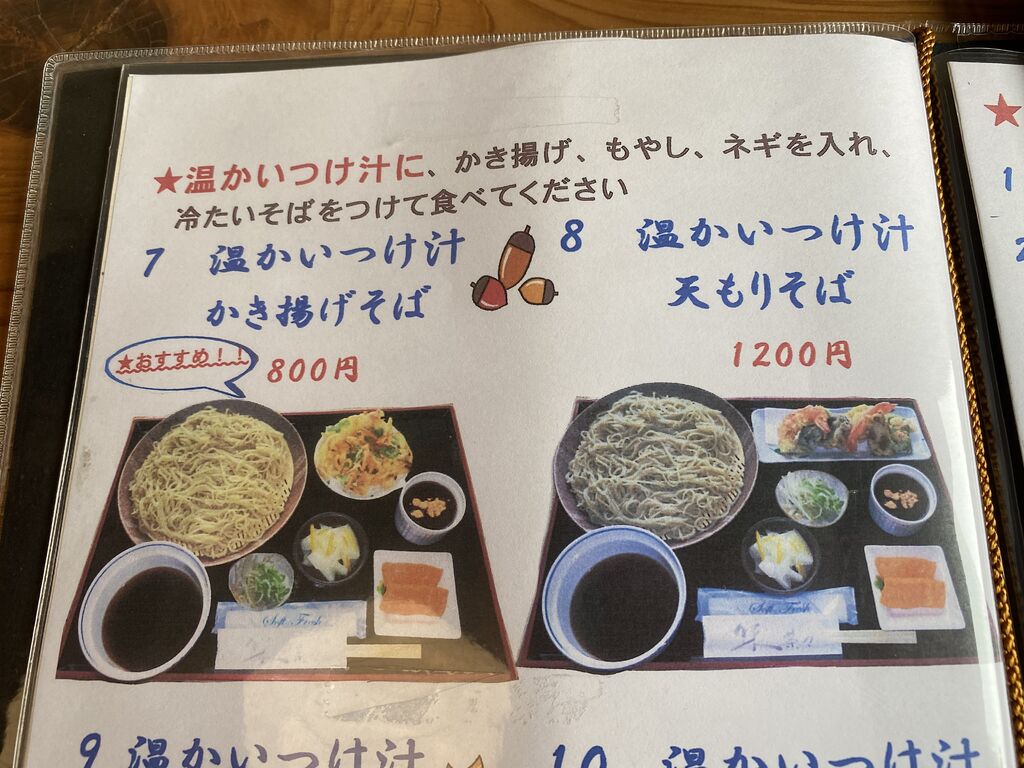 ★温かいつけ汁に、かき揚げ、もやし、ネギを入れ、
冷たいそばをつけて食べてください
7 温かいつけ汁
かき揚げそば
★おすすめ！！
800円
8 温かいつけ汁
天もりそば
1200円
Soft Fresh
Soft Fresh
9 温かいつけ汁
10 温かいつけ汁
★
1
2